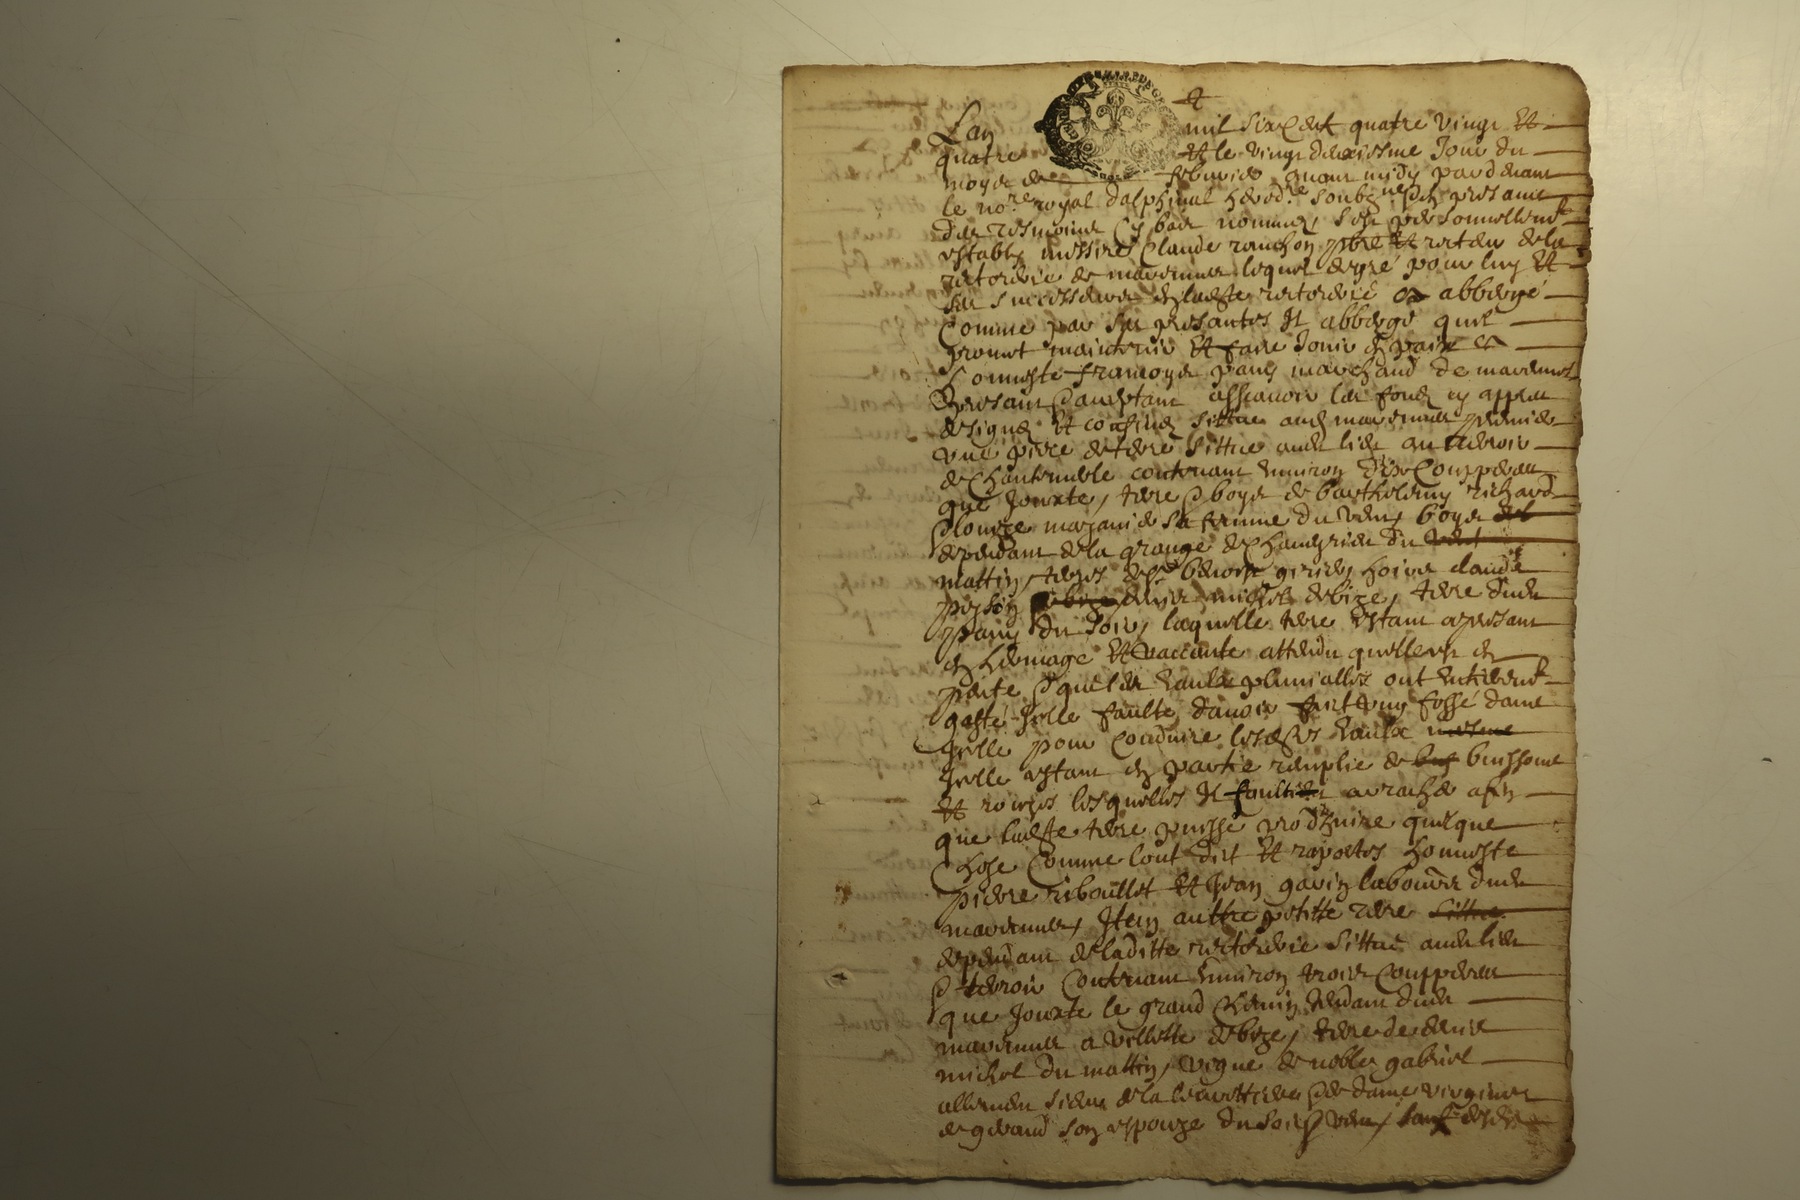 Lan mil six Cent quatre vingt et
quatre et le vingt deuxiesme Jour du
moys de febvrier avant midy pardevant
le no.re royal dalphinal hered.re soubzne et presantz
des tesmoins Cy bas nommez, sest personnellemt
establi messire Claude ronchon pbre et recteur de la
rectorerie de marennes lequel de gré pour luy et
ses successeurs en ladte rectorerie a abbergé
Comme par ses presantes Il abberge quil
promet maintenir et faire Jouir en paix a
honneste francoys pany marchand de marennes
presant acceptant assavoir les fondz cy appres
designez et confinez sittue audt marennes premier
une piece de terre sittue audt lieu au terroir
de Chantemerle contenant environ dix Coupperees
que Jouxte, terre boys de barthelemy richard
sa femme du vent, boys
dependant de la grange de du
mattin, terres de benoist hoirs claude
michel debize, terre dudt
pany du soir, laquelle terre estant apresant
en hermage et vaccante attendu quelle est en
pante et que les eaulx pluvialles ont entieremt
gasté Jcelle faulte davoir fait un fossé dans
Jcelle pour Conduire lesdtes eaulx mesme
Jcelle estant en partie remplie de buissons
et ronzes lesquelles Il arracher afin
que ladte terre puisse prodhuire quelque
Chose Comme lont dict et raportes honneste
pierre riboullet et Jean gavin laboureur dudt
marennes, Item aultre petitte terre sittue
dependant de laditte rectorerie sittue audt lieu
et terroir Contenant environ trois Coupperees
que Jouxte le grand Chemin tendant dudt
marennes a villette debize, terre de denis
michel du mattin, vigne de noble gabriel
allemdu sieur de la et de dame virginie
de giraud son espouze du soir vent, sauf